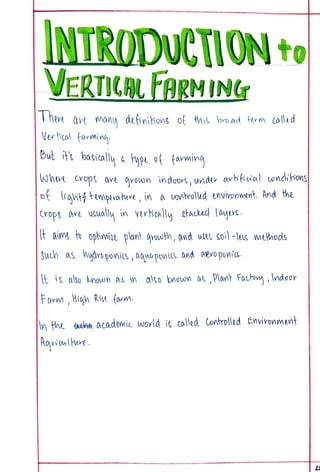 INTRODUCTION to
VERTICAL FARMING
There are many definitions of this broad term called
Vertical farming.
But it's basically a type of farming
Where crops are grown indoors, under artificial conditions
of light & temperature, in a controlled environment. And the
crops are usually in vertically stacked layers.
It aims to optimise plant growth, and uses soil-less methods
such as hydroponics, aquaponics and aeroponics.
It is also known as in also known as, Plant Factory, Indoor
Farm, High Rise farm.
In the academic world is called Controlled Environment
Agriculture.